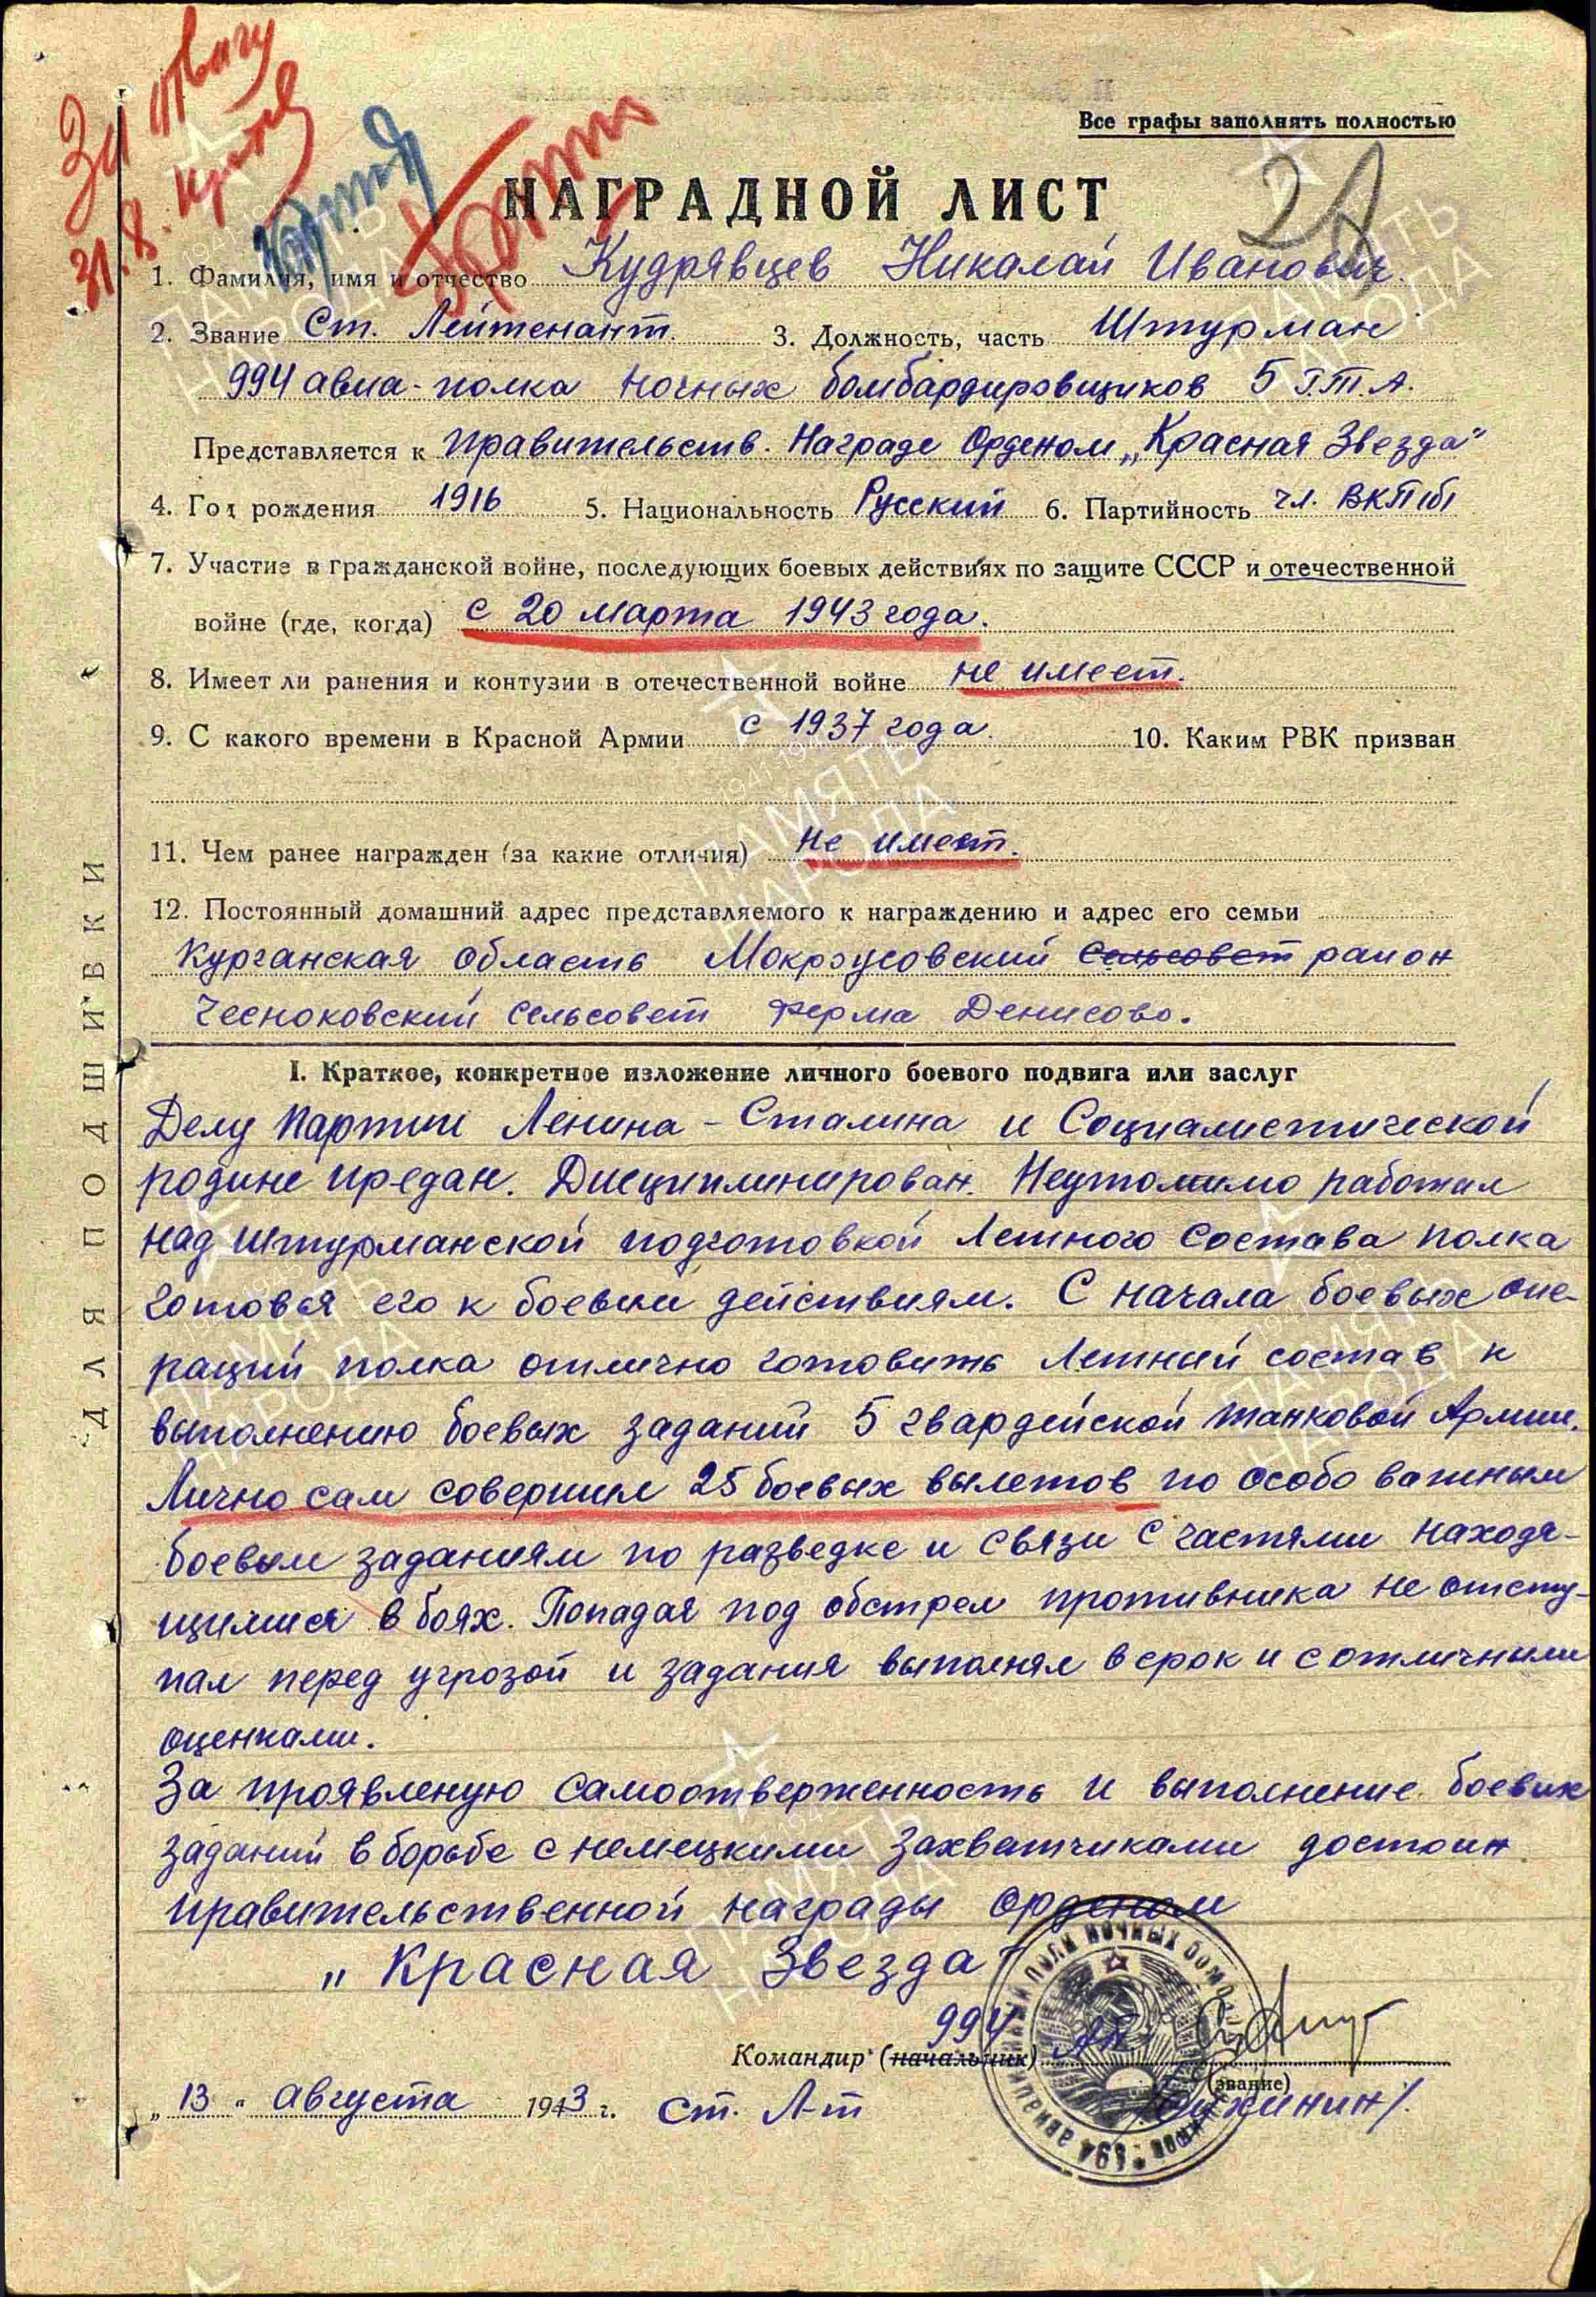 За отвагу
31.8.
Все графы заполнять полностью
НАГРАДНОЙ ЛИСТ
1. Фамилия, имя и отчество Кудрявцев Николай Иванович.
2. Звание Ст. Лейтенант. 3. Должность, часть Штурман
994 авиа-полка ночных бомбардировщиков 5 Г.Т.А.
Представляется к правительств. Награде Орденом „Красная Звезда"
4. Год рождения 1916 5. Национальность Русский 6. Партийность чл. ВКП(б)
7. Участие в гражданской войне, последующих боевых действиях по защите СССР и отечественной
войне (где, когда) с 20 марта 1943 года.
8. Имеет ли ранения и контузии в отечественной войне не имеет.
9. С какого времени в Красной Армии с 1937 года. 10. Каким РВК призван
11. Чем ранее награжден (за какие отличия) Не имеет.
12. Постоянный домашний адрес представляемого к награждению и адрес его семьи
Курганская область Мокроусовский сельсовет район
Чесноковский сельсовет ферма Денисово.
ДЛЯ ПОДШИВКИ
I. Краткое, конкретное изложение личного боевого подвига или заслуг
Делу партии Ленина - Сталина и Социалистической
родине предан. Дисциплинирован. Неутомимо работал
над штурманской подготовкой Летного состава полка
готовя его к боевым действиям. С начала боевых опе-
раций полка отлично готовить Летный состав к
выполнению боевых заданий 5 гвардейской танковой Армии.
Лично сам совершил 25 боевых вылетов по особо важным
боевым заданиям по разведке и связи с частями находя-
щимися в боях. Попадая под обстрел противника не отсту-
пал перед угрозой и задания выполнял в срок и с отличными
оценками.
За проявленую самоотверженность и выполнение боевых
заданий в борьбе с немецкими захватчиками достоин
правительственной награды орденом
„Красная Звезда"
994 АП
Командир (начальник)
(звание)
„13" августа 1943 г. Ст. Л-т
ПАМЯТЬ НАРОДА
1941-1945